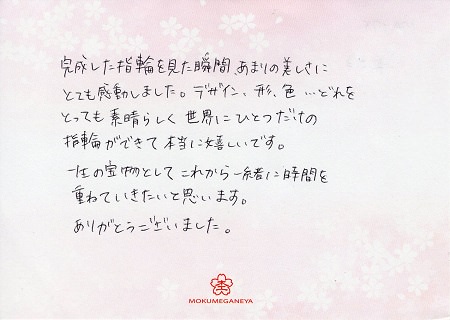 完成した指輪を見た瞬間、あまりの美しさに
とても感動しました。デザイン、形、色…どれを
とっても素晴らしく世界にひとつだけの
指輪ができて本当に嬉しいです。
一生の宝物としてこれから一緒に時間を
重ねていきたいと思います。
ありがとうございました。
MOKUMEGANEYA